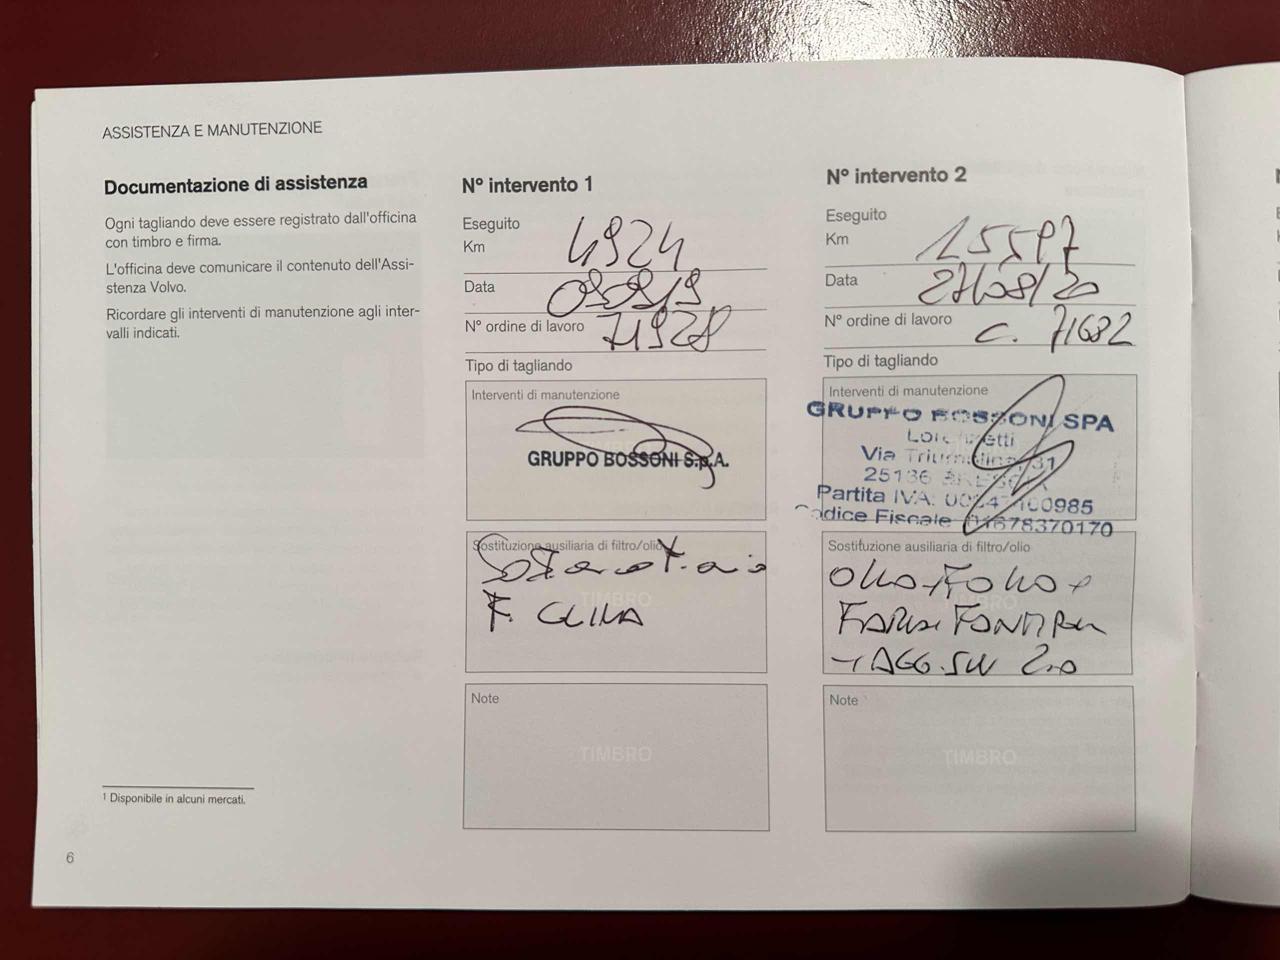 ASSISTENZA E MANUTENZIONE
Documentazione di assistenza
Ogni tagliando deve essere registrato dall'officina
con timbro e firma.
L'officina deve comunicare il contenuto dell'Assi-
stenza Volvo.
Ricordare gli interventi di manutenzione agli inter-
valli indicati.
1 Disponibile in alcuni mercati.
6
N° intervento 1
Eseguito
Km 4924
Data 090919
N° ordine di lavoro 71928
Tipo di tagliando
Interventi di manutenzione
GRUPPO BOSSONI S.p.A.
Sostituzione ausiliaria di filtro/olio
TIMBRO
F. CLIMA
Note
TIMBRO
N° intervento 2
Eseguito
Km 15597
Data 27/08/20
N° ordine di lavoro C. 71682
Tipo di tagliando
Interventi di manutenzione
GRUPPO BOSSONI SPA
Via
25136
Partita IVA:
Codice Fiscale 01678370170
Sostituzione ausiliaria di filtro/olio
OLIO + F OLIO +
TIMBRO
+ AGG. SW 2.0
Note
TIMBRO